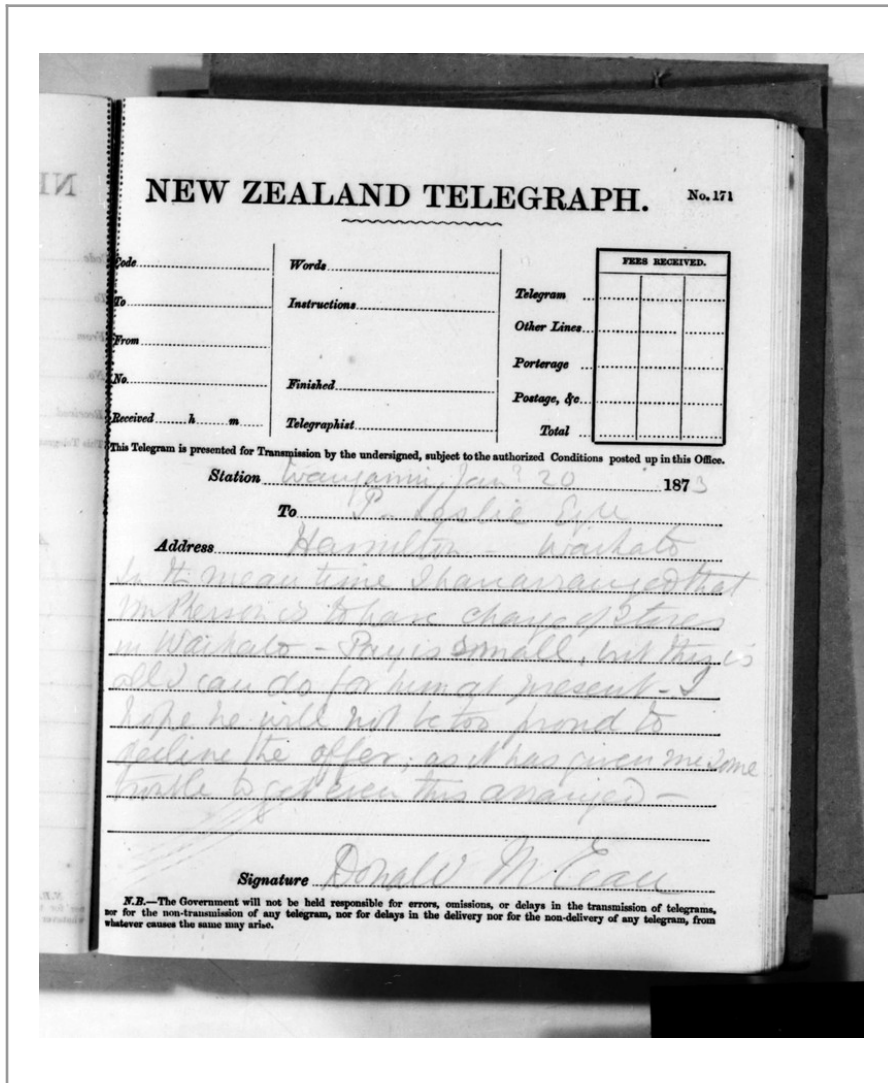 NEW ZEALAND TELEGRAPH.
No. 171
Code
Words
FEES RECEIVED.
To
Instructions
Telegram
Other Lines
From
Porterage
No.
Finished
Postage, &c
Received h m
Telegraphist
Total
This Telegram is presented for Transmission by the undersigned, subject to the authorized Conditions posted up in this Office.
Station Wanganui, Jany 20 1873
To P. Leslie Esqre
Address Hamilton - Waikato
In the mean time I have arranged that
McPherson is to have charge of Stores
in Waikato - Pay is small, but this is
all I can do for him at present - I
hope he will not be too proud to
decline the offer; as it has given me some
trouble to get even this arranged -
Signature Donald McLean
N.B.—The Government will not be held responsible for errors, omissions, or delays in the transmission of telegrams,
nor for the non-transmission of any telegram, nor for delays in the delivery nor for the non-delivery of any telegram, from
whatever causes the same may arise.